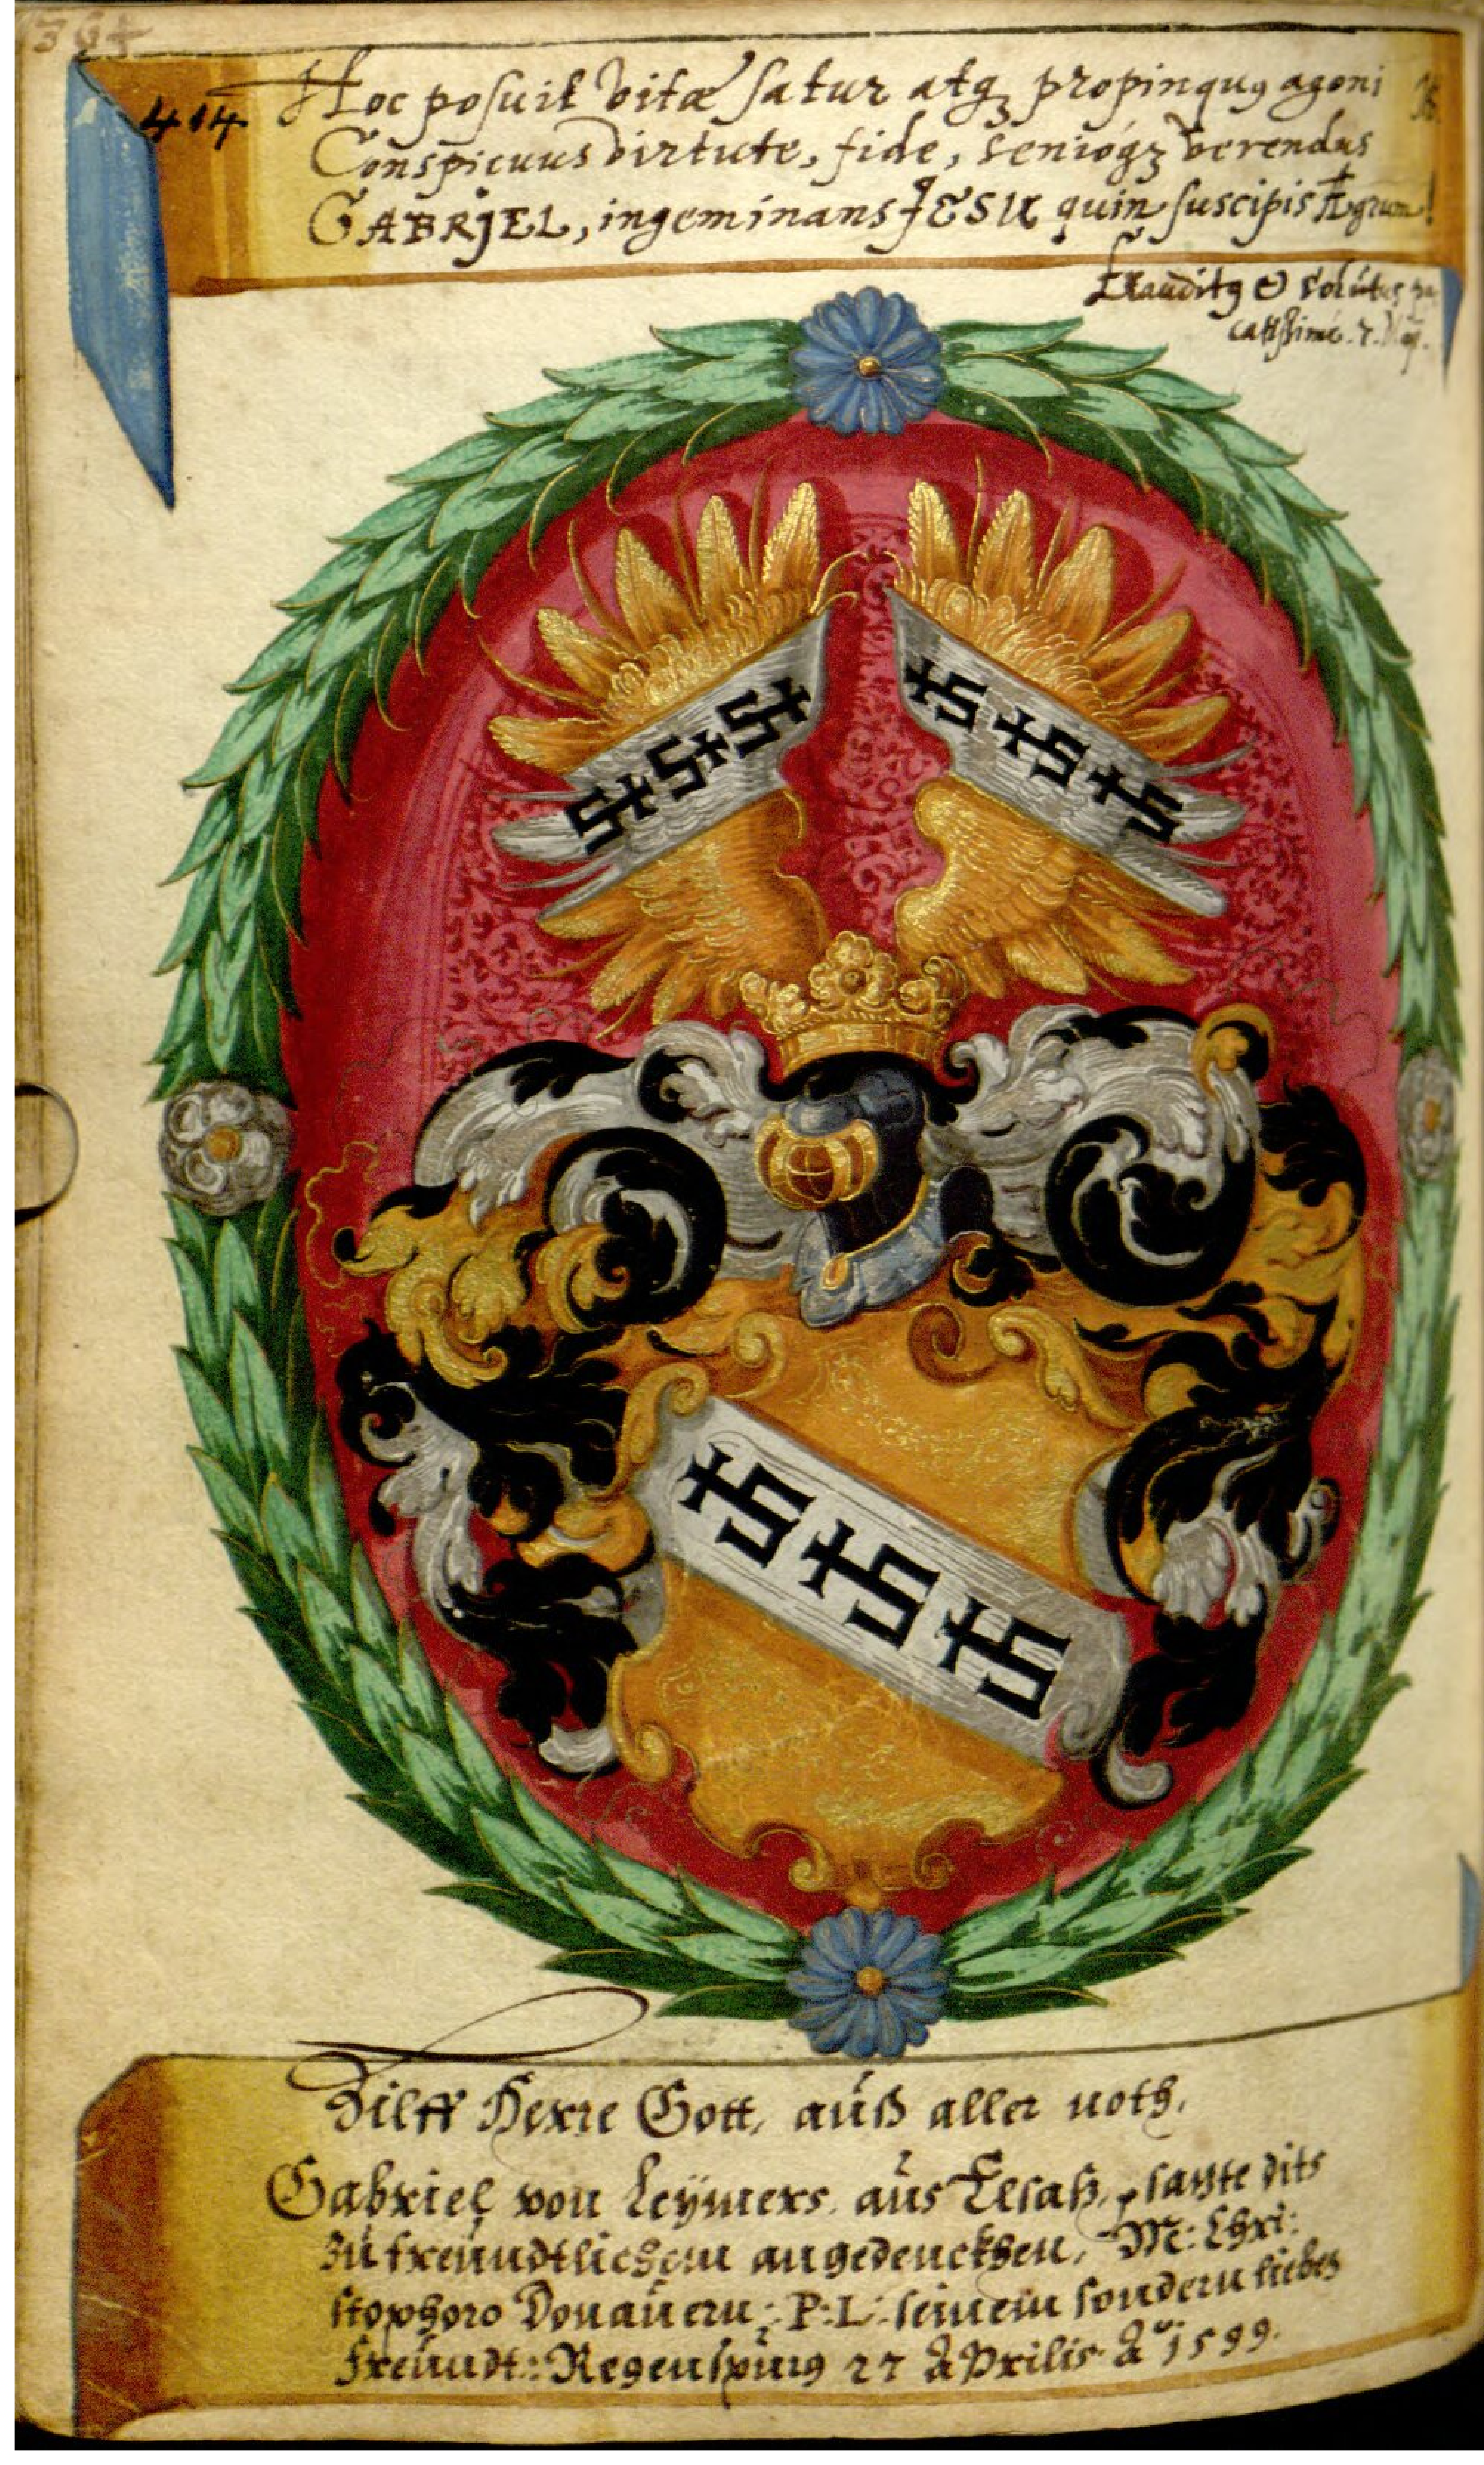 364
414 Hoc posuit vitæ satur atqꝫ propinquꝰ agoni
Conspicuus virtute, fide, senióqꝫ verendus
GABRJEL, ingeminans JESU quin suscipis Ægrum!
Exauditꝰ & solútus pa
catissimè. 7. Maij.
Hilff Herre Gott, auß aller noth.
Gabriel von Leÿmers aus Elsaß, satzte dits
zu freundtlichem angedenckhen, M: Chri:
stophoro Donauern: P: L: seinem sondern lieben
freundt: Regenspurg 27 Aprilis A° 1599.